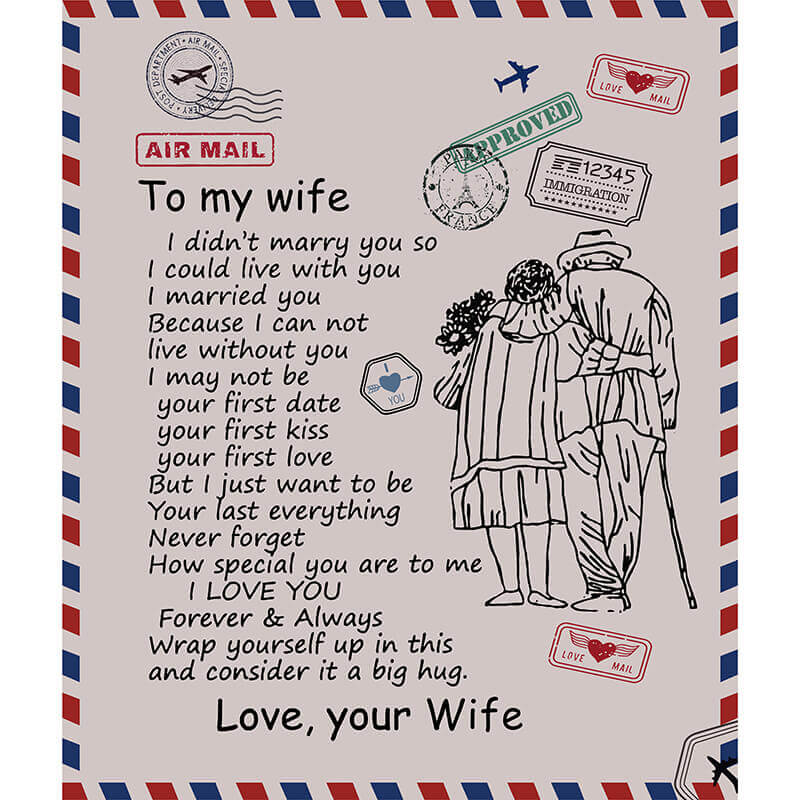 POST DEPARTMENT • AIR MAIL • SPECIAL DELIVERY •
AIR MAIL
LOVE MAIL
APPROVED
FRANCE
12345
IMMIGRATION
To my wife
I didn't marry you so
I could live with you
I married you
Because I can not
live without you
I may not be
your first date
your first kiss
your first love
But I just want to be
Your last everything
Never forget
How special you are to me
I LOVE YOU
Forever & Always
Wrap yourself up in this
and consider it a big hug.
Love, your Wife
I
YOU
LOVE MAIL